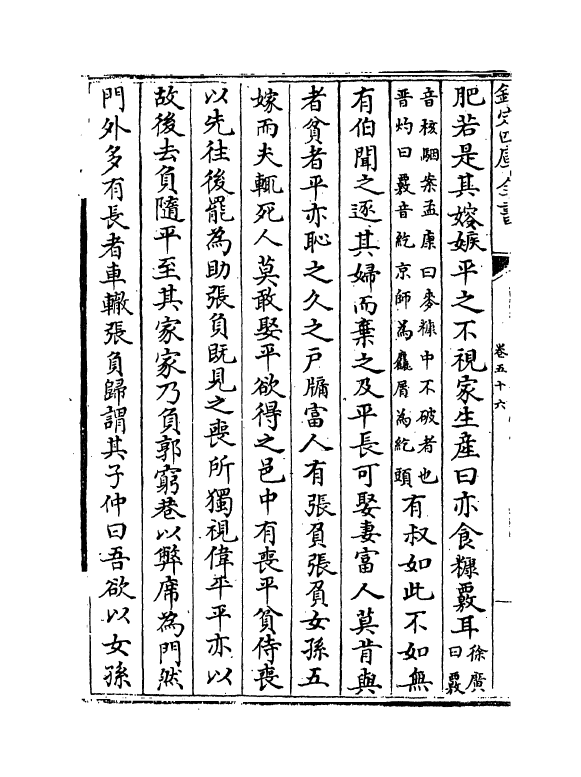 欽定四庫全書
卷五十六
肥若是其嫂嫉平之不視家生産曰亦食糠覈耳徐廣曰覈
音核駰案孟康曰麥糠中不破者也晋灼曰覈音紇京師為麤屑為紇頭有叔如此不如無
有伯聞之逐其婦而棄之及平長可娶妻富人莫肯與
者貧者平亦恥之久之戸牖富人有張負張負女孫五
嫁而夫輒死人莫敢娶平欲得之邑中有喪平貧侍喪
以先往後罷為助張負既見之喪所獨視偉平平亦以
故後去負隨平至其家家乃負郭窮巷以弊席為門然
門外多有長者車轍張負歸謂其子仲曰吾欲以女孫